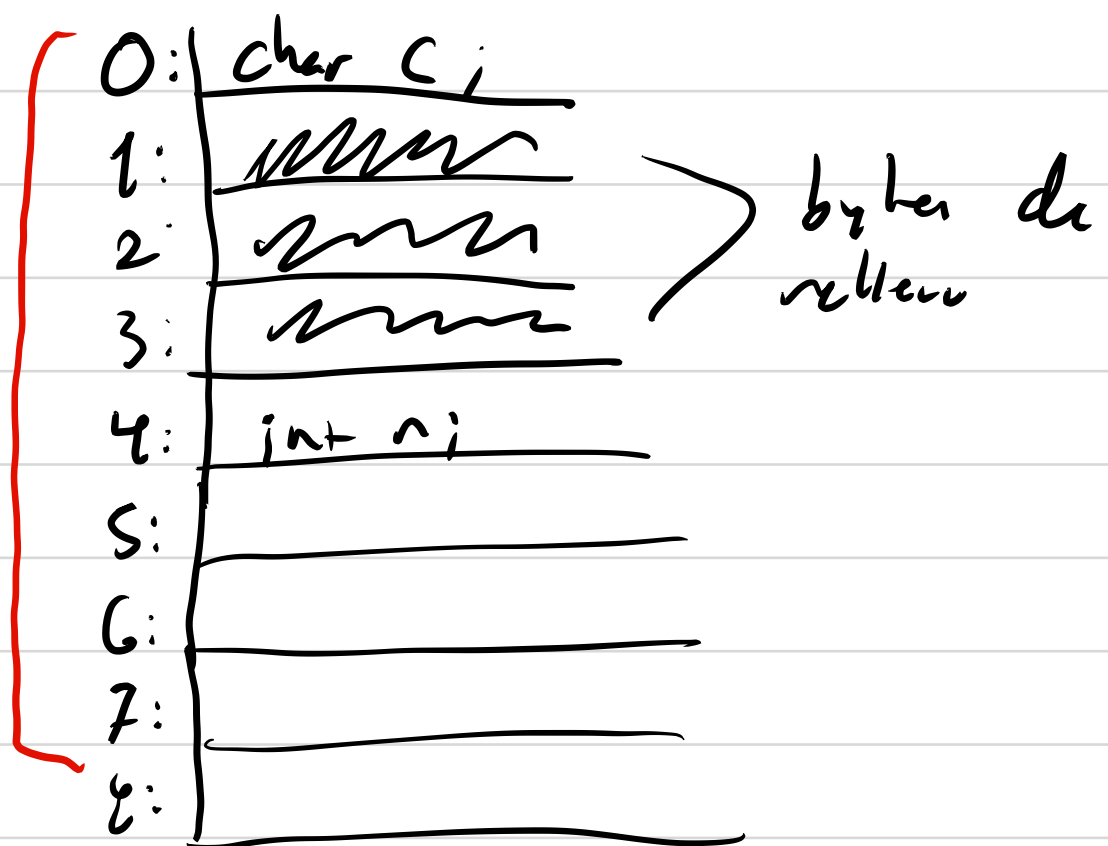 0: char c;
1:
2:
3:
bytes de
relleno
4: int n;
5:
6:
7:
8: